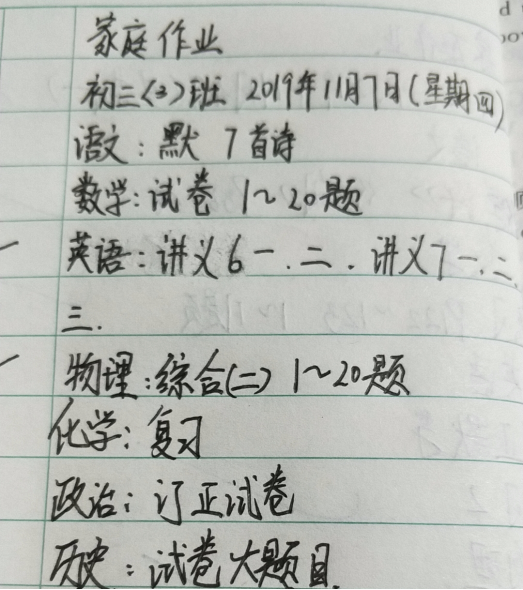 家庭作业
初三<3>班 2019年11月7日(星期四)
语文:默 7首诗
数学:试卷 1~20题
英语:讲义6一.二.讲义7一.二.
三.
物理:综合(二) 1~20题
化学:复习
政治:订正试卷
历史:试卷大题目.